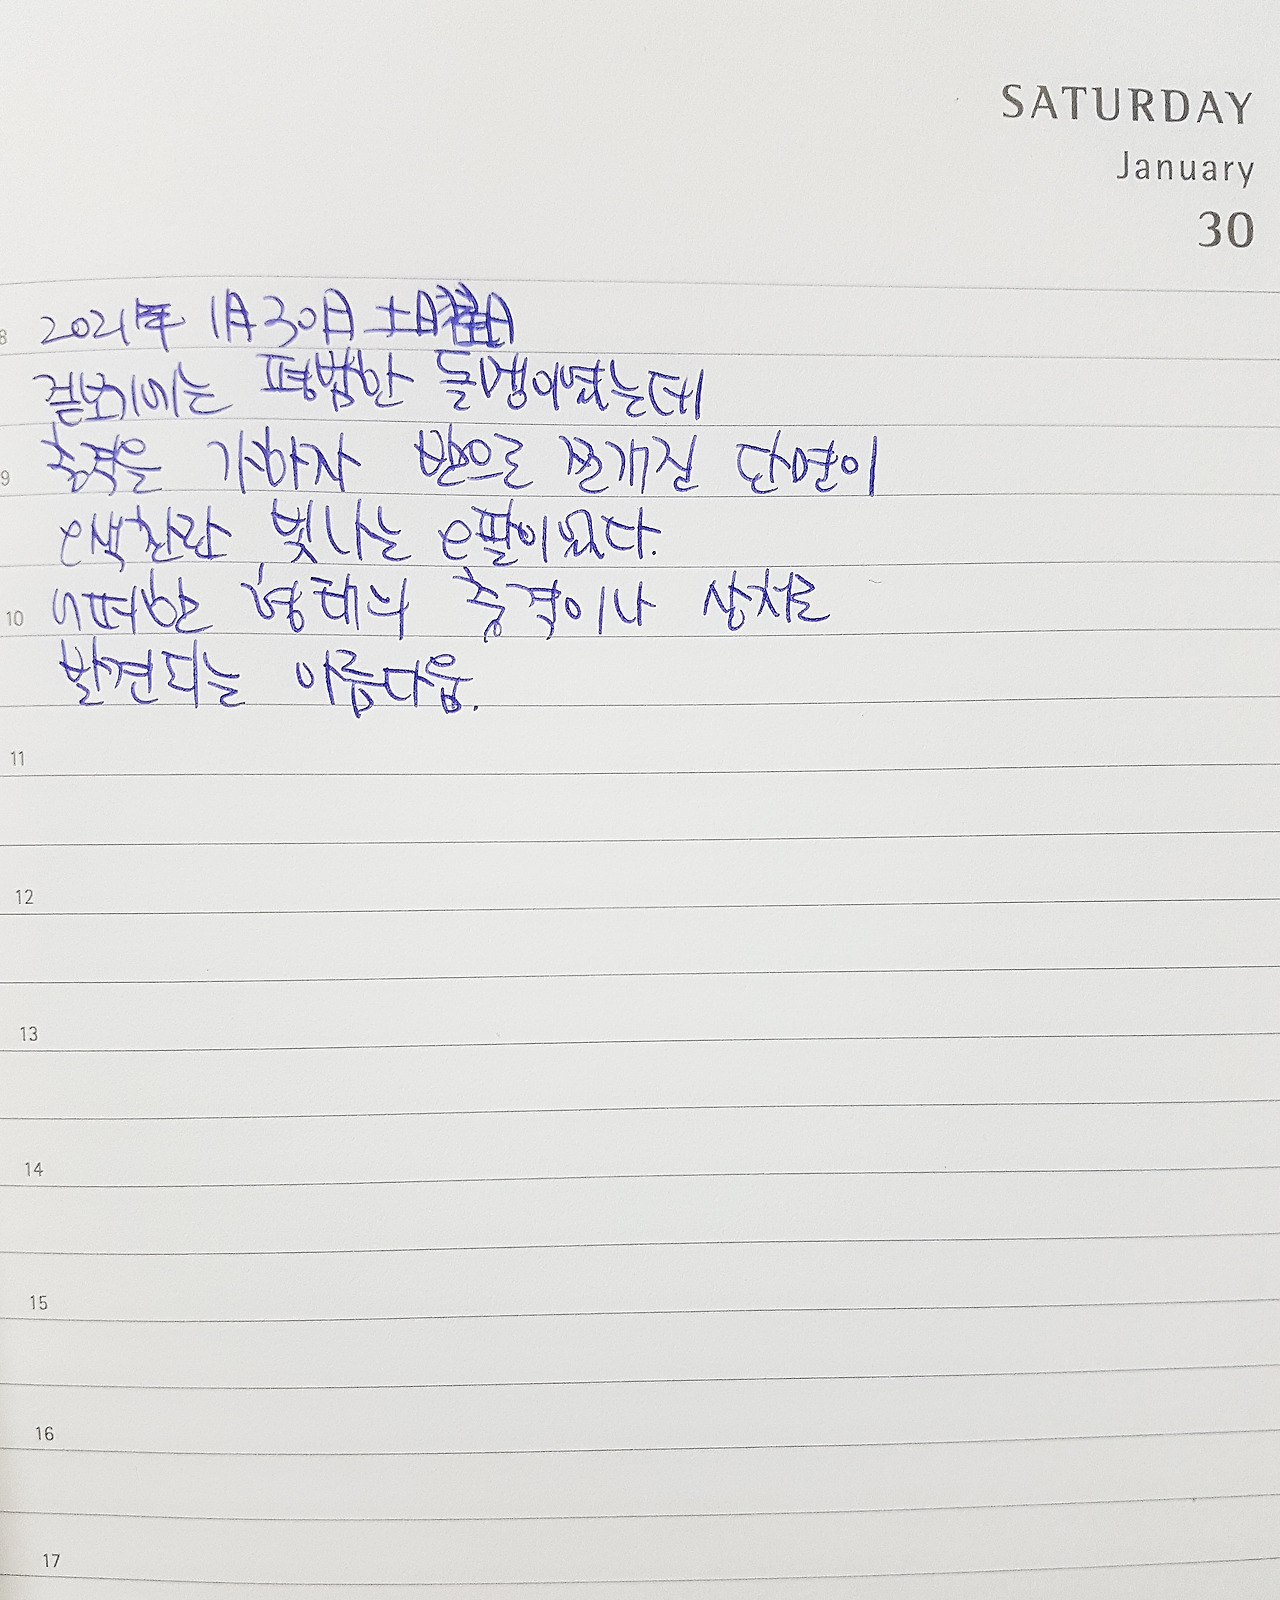 SATURDAY
January
30
8
2021年 1月30日 土曜日
겉보기에는 평범한 돌멩이였는데
9
충격을 가하자 반으로 쪼개진 단면이
오색찬란 빛나는 오팔이었다.
10
어떠한 형태의 충격이나 상처로
발견되는 아름다움.
11
12
13
14
15
16
17